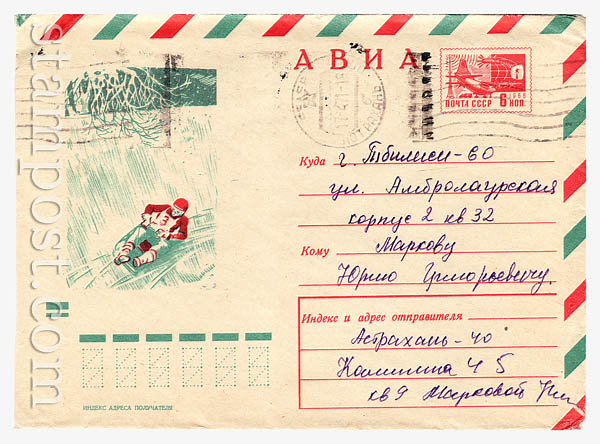 АВИА
ПОЧТА СССР 6 КОП.
1966
Куда г. Тбилиси-60
ул. Амбролаурская
корпус 2 кв 32
Кому Маркову
Юрию Григорьевичу.
Индекс и адрес отправителя
Астрахань-40
Калинина 45
кв 9 Марковой
ИНДЕКС АДРЕСА ПОЛУЧАТЕЛЯ
stamppost.com